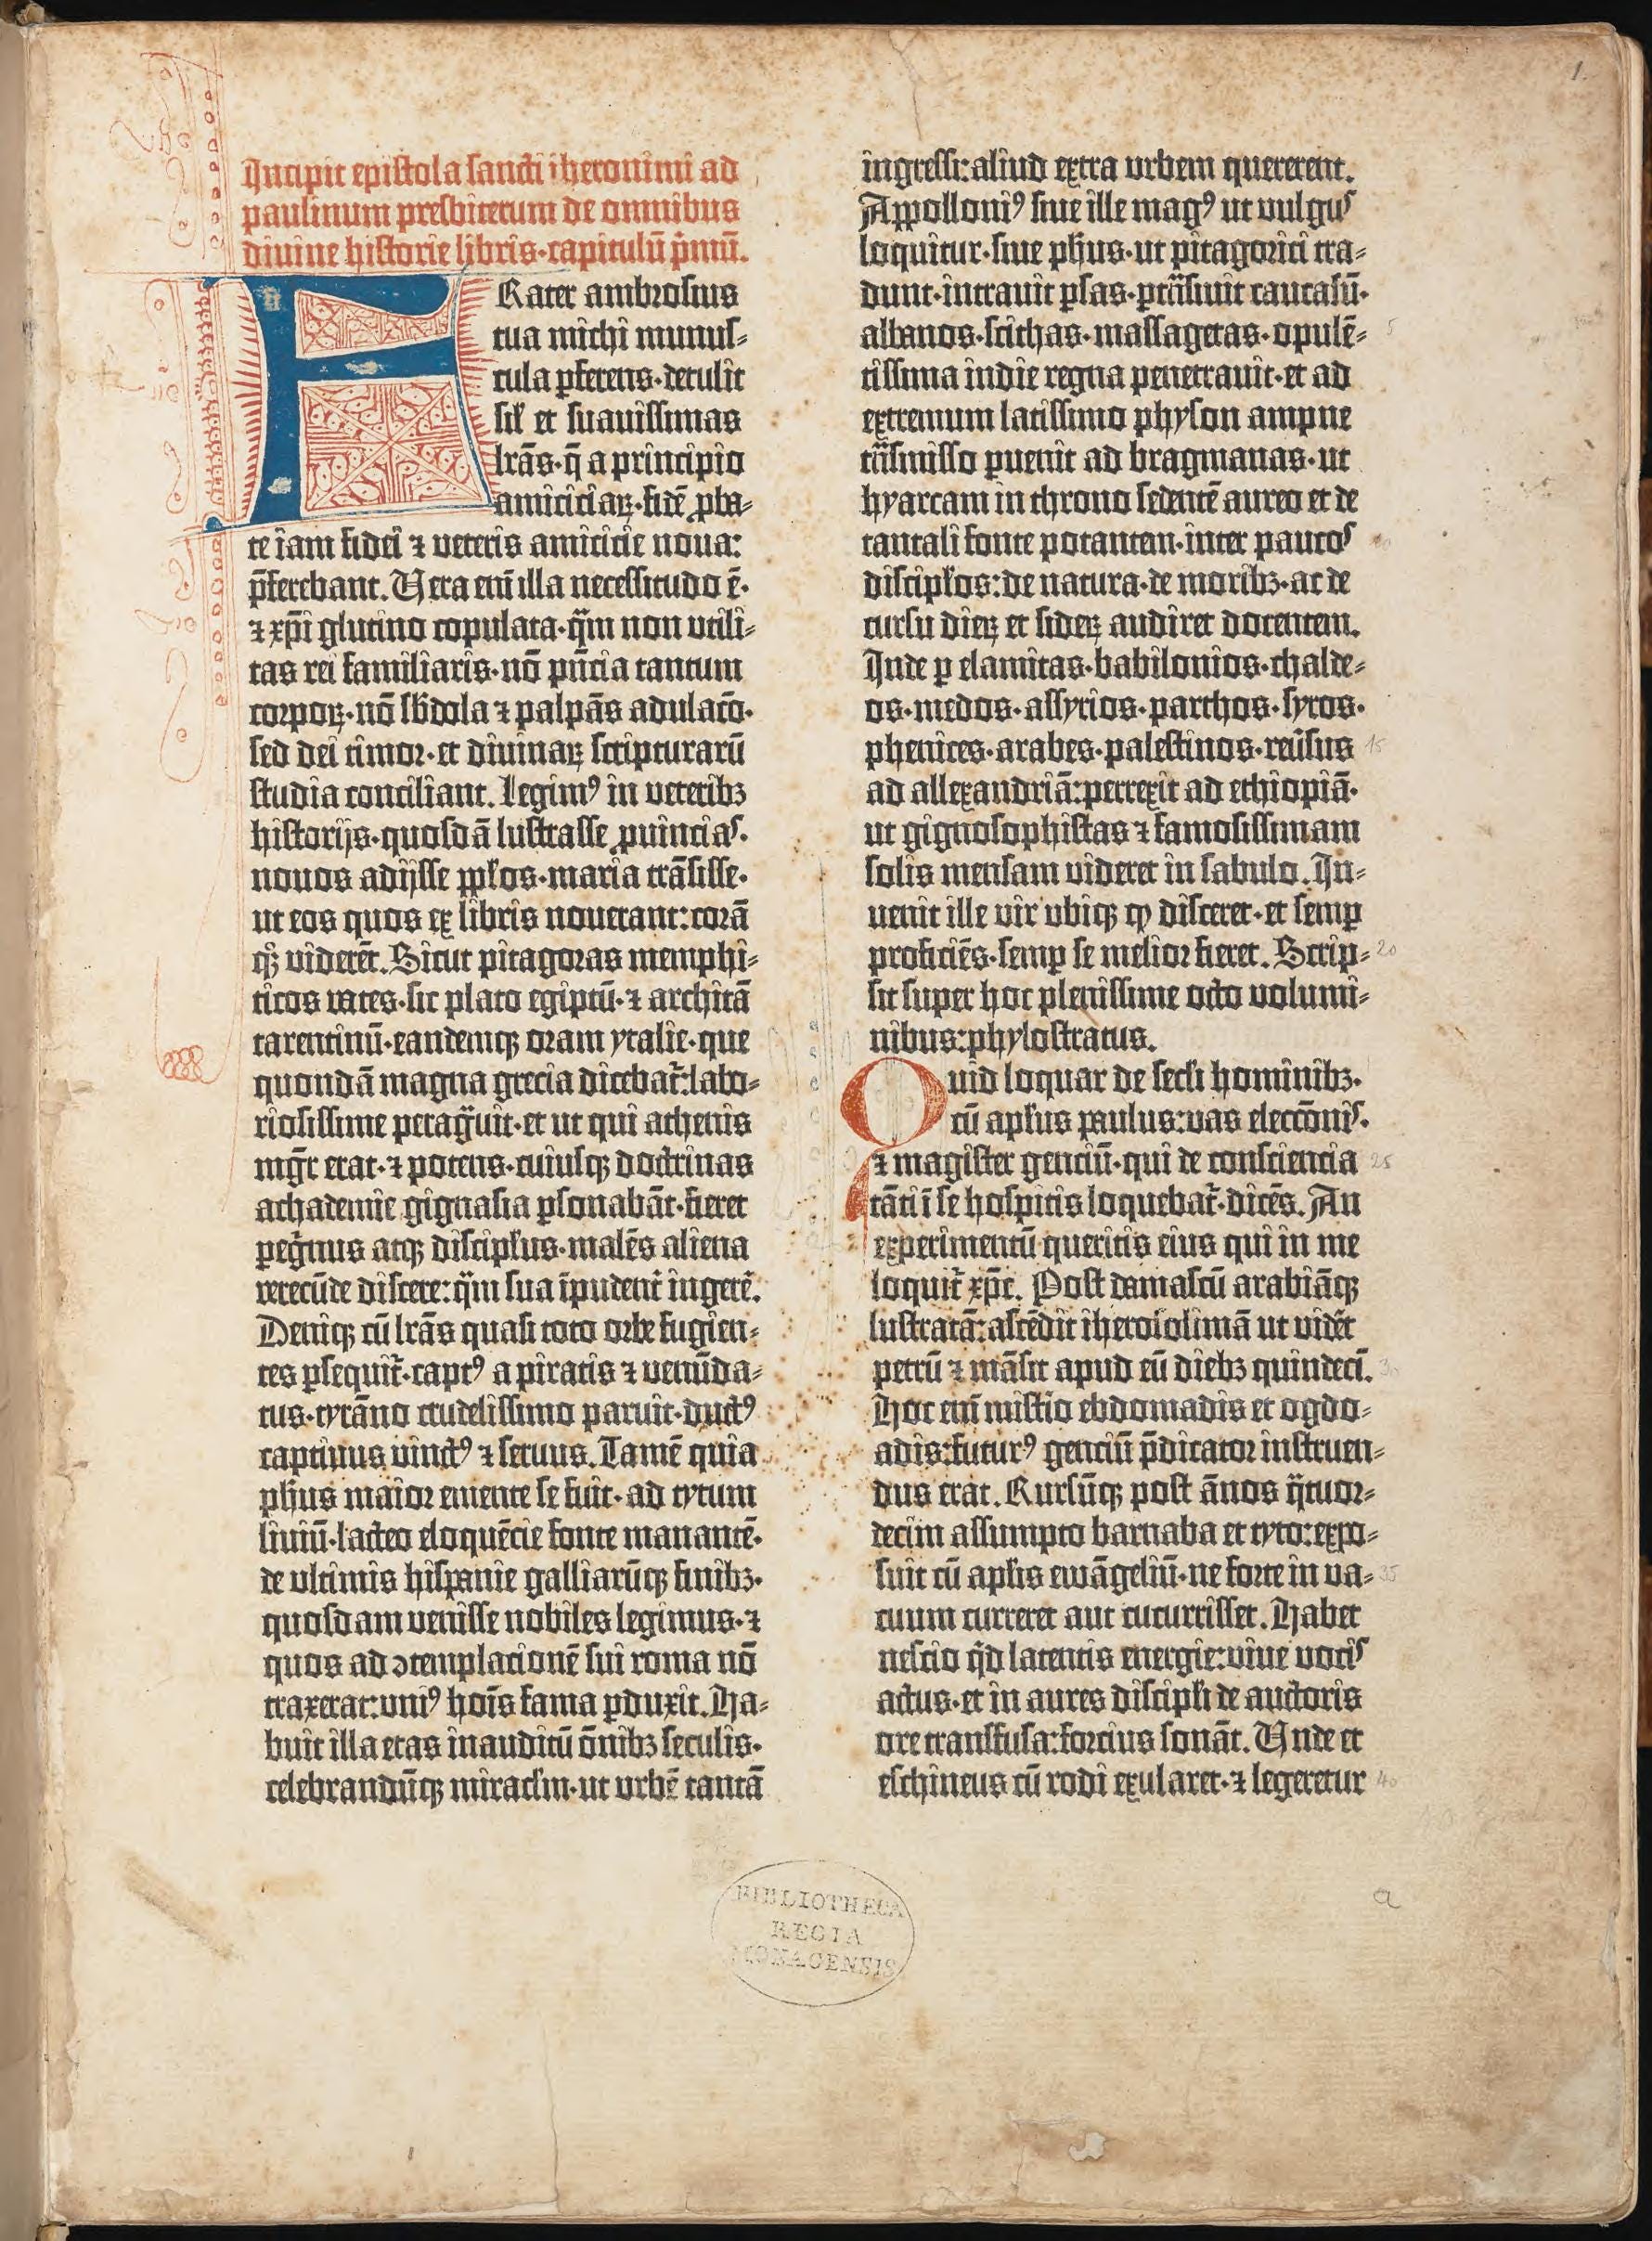 Incipit epistola sancti iheronimi ad
paulinum presbiterum de omnibus
divine historie libris·capitulū p̄mū.
FRater ambrosius
tua michi munus⸗
cula ꝑferens·detulit
sil̄ et suauissimas
lrās·q̄ a principio
amiciciaꝝ·fidē ꝓba⸗
te iam fidei ⁊ veteris amicicie noua:
p̄ferebant. Vera eni̅ illa necessitudo ē·
⁊ xp̄i glutino copulata·qͣm non vtili⸗
tas rei familiaris·nō pn̄cia tantum
corpoꝝ·nō sb̄dola ⁊ palpās adulacō·
sed dei timor·et diuinaꝝ scripturarū
studia conciliant. Legimꝰ in veteribꝫ
historijs·quosdā lustrasse ꝓuincias·
nouos adijsse ppl̄os·maria trāsisse·
ut eos quos ex libris nouerant: corā
qꝫ viderēt. Sicut pitagoras memphi⸗
ticos vates·sic plato egiptū·⁊ architā
tarentinū·eandemqꝫ oram ytalie·que
quondā magna grecia dicebat᷑: labo⸗
riosissime peragͣuit·et ut qui athenis
mgr̄ erat·⁊ potens·cuiusqꝫ doctrinas
achademie gignasia ꝑsonabāt·fieret
ꝑegͥnus atqꝫ discipl̄us·malēs aliena
verecūde discere: qͣm sua īpudent᷑ ingerē.
Deniqꝫ cū lrās quasi toto orbe fugien⸗
tes ꝑsequit᷑·captꝰ a piratis ⁊ venūda⸗
tus·tyrāno crudelissimo paruit·ductꝰ
captiuus vinctꝰ ⁊ seruus. Tamē quia
ph̄us maior emente se fuit·ad tytum
liuiū·lacteo eloquēcie fonte manantē·
de ultimis hispanie galliarūqꝫ finibꝫ·
quosdam venisse nobiles legimus·⁊
quos ad ꝯtemplacionē sui roma nō
traxerat: uniꝰ hoīs fama ꝑduxit. Ha⸗
buit illa etas inauditū ōnibꝫ seculis·
celebrandūqꝫ miraclm̄·ut urbē tantā
ingressi: aliud extra urbem quererent.
Appolloniꝰ siue ille magꝰ ut vulgus
loquitur·siue ph̄us·ut pitagorici tra⸗
dunt·intrauit ꝑsas·ꝑtͣsiuit caucasū·
albanos·scithas·massagetas·opulē⸗ 5
tissima indie regna penetrauit·et ad
extremum latissimo physon ampne
tͣsmisso ꝑuenit ad bragmanas·ut
hyarcam in throno sedentē aureo et de
tantali fonte potantem·inter paucos 10
discipl̄os: de natura·de moribꝫ·ac de
cursu dieꝝ et sideꝝ audiret docentem.
Inde ꝑ elamitas·babilonios·chalde⸗
os·medos·assyrios·parthos·syros·
phenices·arabes·palestinos·reūsus 15
ad allexandriā: perrexit ad ethiopiā·
ut gignosophistas ⁊ famosissimam
solis mensam videret in sabulo. In⸗
uenit ille vir ubiqꝫ qp̄ disceret·et semꝑ
proficiēs·semꝑ se melior fieret. Scrip⸗ 20
sit super hoc plenissime octo volumi⸗
nibus: phylostratus.
Quid loquar de secl̄i hominibꝫ·
cū apl̄us paulus: vas elecc̄onis·
⁊ magister genciū·qui de consciencia 25
tāti ī se hospitis loquebat᷑·dicēs. An
experimentū queritis eius qui in me
loquit᷑ xp̄c. Post damascū arabiāqꝫ
lustratā: ascēdit iherosolimā ut vidēt
petrū ⁊ māsit apud eū diebꝫ quindecī. 30
Hoc eni̅ mistio ebdomadis et ogdo⸗
adis: futurꝰ genciū p̄dicator instruen⸗
dus erat. Rursūqꝫ post ānos qͣtuor⸗
decim assumpto barnaba et tyto: expo⸗
suit cū apl̄is ewāgeliū·ne forte in va⸗ 35
cuum curreret aut cucurrisset. Habet
nescio qͥd latentis energie: viue vocis
actus·et in aures discipl̄i de auctoris
ore transfusa: forcius sonāt. Vnde et
eschineus cū rodi exularet·⁊ legeretur 40
1.
a
BIBLIOTHECA
REGIA
MONACENSIS